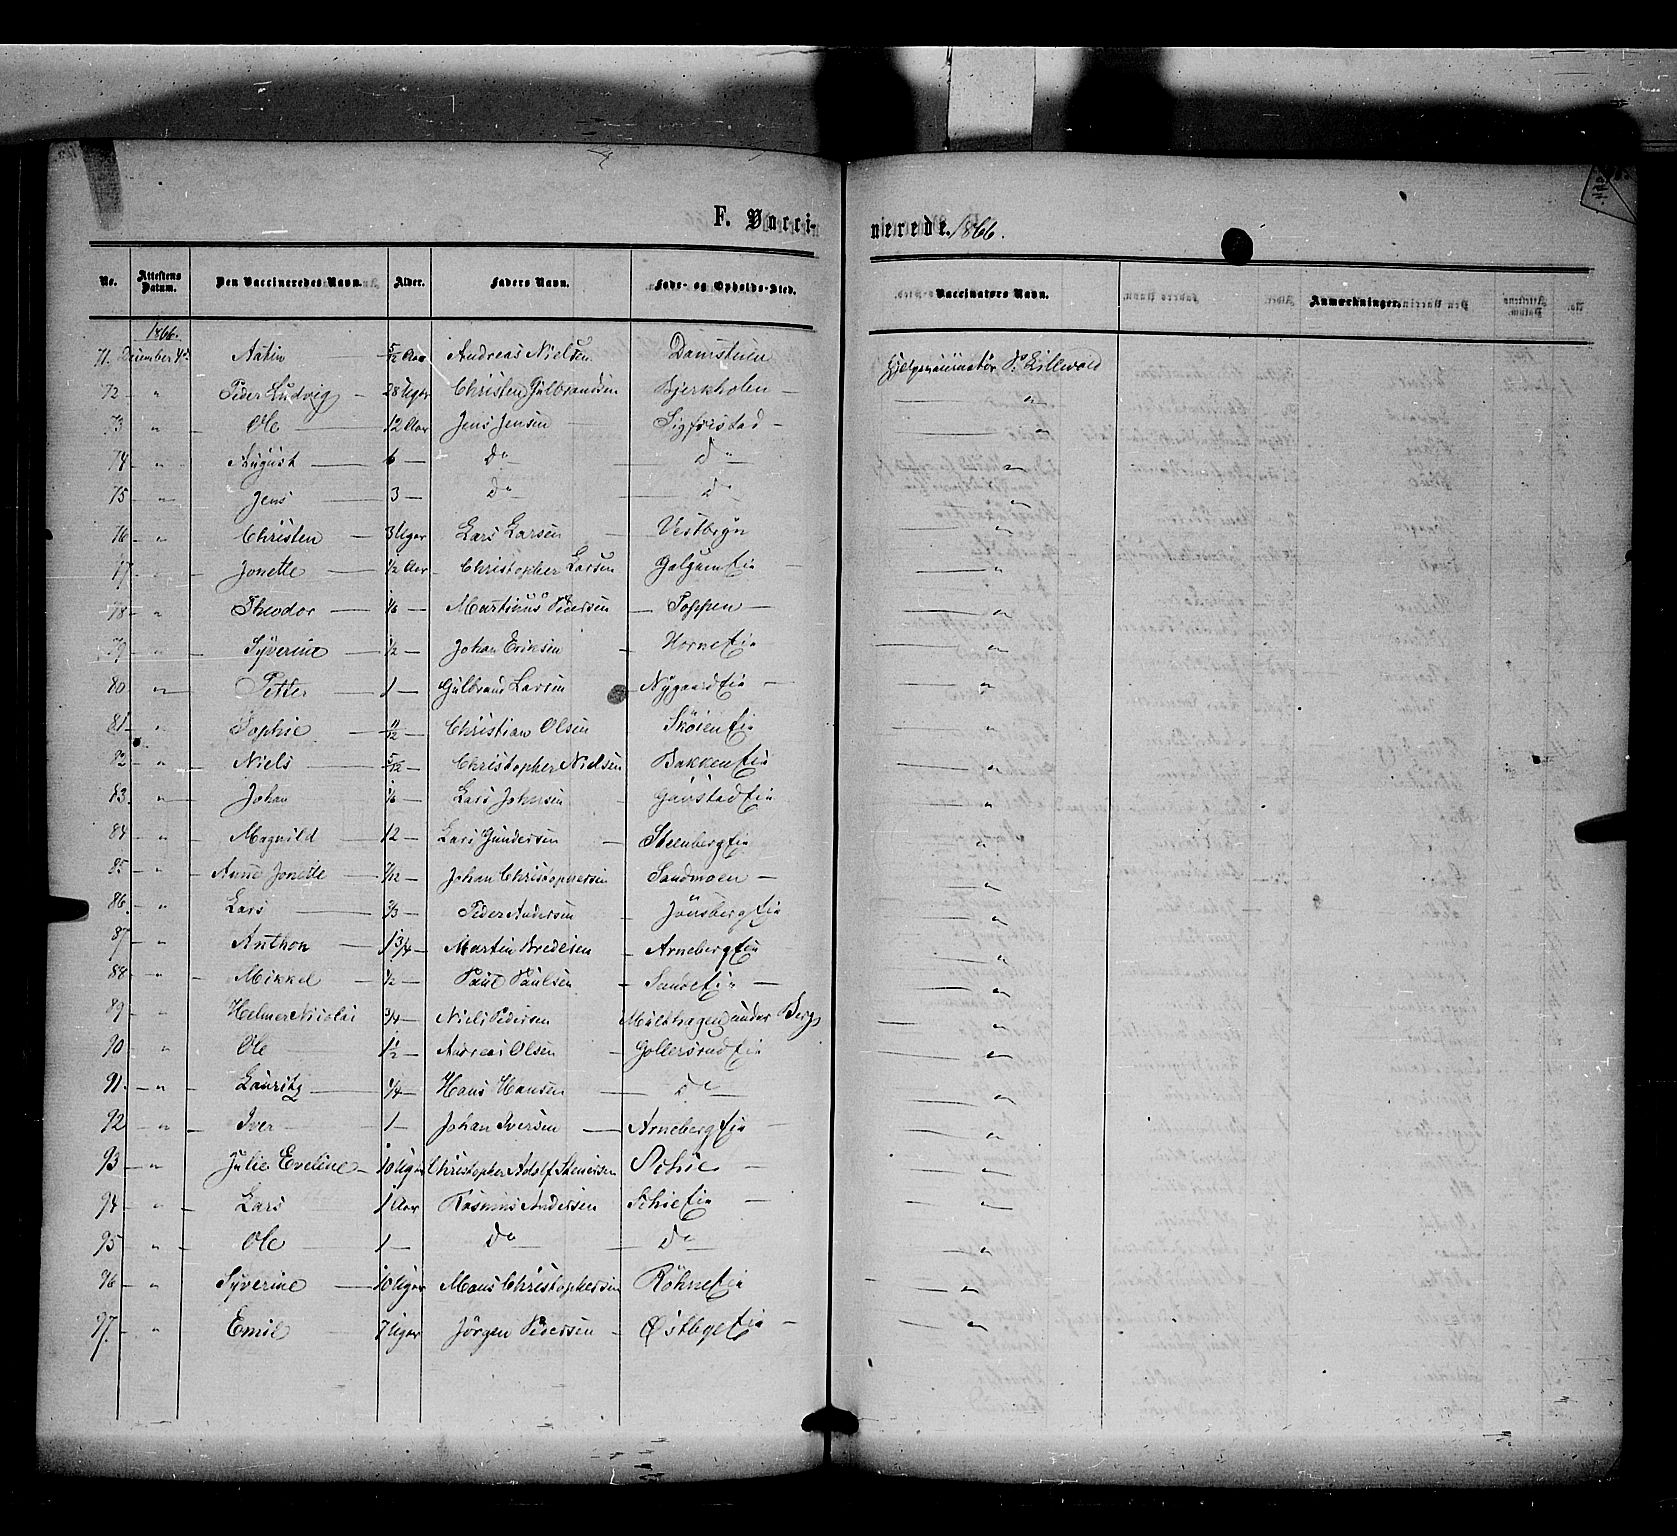 F. Vacci-
nerede. 1866.
No. Attestens Datum. Den Vaccineredes Navn. Alder. Faders Navn. Føde- og Opholds-Sted. Vaccinatørs Navn. Anmærkninger.
1866.
71. December 4de Aatin 5/12 Aar Andreas Nielsen Damstuen Hjelpevaccinatør P. Lillevold
72 — " Peder Ludvig — 28 Uger Christen Gulbrandsen Bjerkholen — "
73 — " — Ole — 12 Aar Jens Jensen — Sigfrestad — "
74 — " — August — 6 — Do — Do "
75 — " — Jens — 3 — Do — Do "
76 — " — Christen — 3 Uger Lars Larsen Vestbyn "
77 — " Jonette — 1/2 Aar — Christopher Larsen Galgum Eie — "
78 — " — Theodor — 1/6 — Martinus Pedersen — Toppen — "
79 — " — Syverine 1/2 — Johan Eriksen — Horne Eie "
80 — " — Petter — 1 — Gulbrand Larsen — Nygaard Eie — "
81 — " — Sophie — 11/12 — Christian Olsen Skøien Eie "
82 — " — Niels — 5/12 — Christopher Nielsen Bakken Eie "
83 — " — Johan 1/6 — Lars Johnsen — Gaustad Eie "
84 — " — Magnild — 12 — Lars Gundersen — Steenberg Eie "
85 — " — Anne Jonette 7/12 — Johan Christophersen Sandmoen — "
86 — " — Lars — 2/3 — Peder Andersen — Jønsberg Eie "
87 — " — Anthon — 1 3/4 — Martin Bredesen — Arneberg Eie "
88 — " — Mikkel — 1/2 — Paul Paulsen — Sande Eie — "
89 — " — Helmer Nicolai 3/4 — Niels Pedersen Malthagen under Berg "
90 — " — Ole — 1 1/2 — Andreas Olsen — Gollersrud Eie "
91 — " — Lauritz — 1/4 — Hans Hansen — Do "
92 — " — Iver — 1 — Johan Iversen — Arneberg Eie — "
93 — " — Julie Eveline — 10 Uger Christopher Adolf Stenersen Schie — "
94 — " — Lars — 1 Aar Rasmus Andersen Schie Eie — "
95 — " — Ole — 1 — Do — Do — "
96 — " — Syverine — 10 Uger Mons Christophersen Röhne Eie "
97 — " — Emil — 7 Uger Jörgen Pedersen — Østbye Eie — "